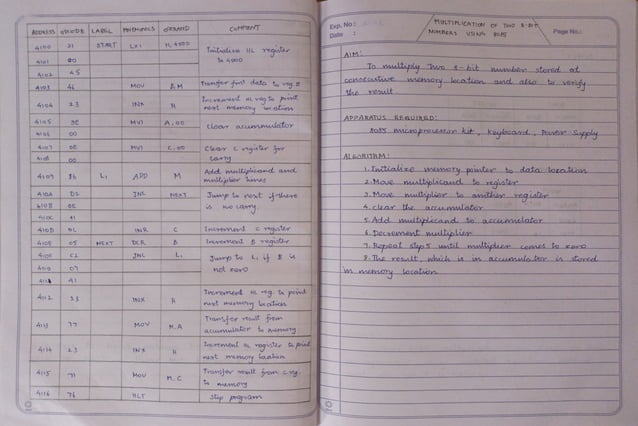 ADDRESS OPCODE LABEL MNEMONICS OPERAND COMMENT
4100 21 START LXI H, 4500 Initialize HL register
4101 00 to 4500
4102 45
4103 46 MOV B,M Transfer first data to reg.B
4104 23 INX H Increment HL reg to point
next memory location
4105 3E MVI A,00 Clear accumulator
4106 00
4107 0E MVI C,00 Clear C register for
4108 00 carry
4109 86 L1 ADD M Add multiplicand and
multiplier times
410A D2 JNC NEXT Jump to next if there
410B 0E is no carry
410C 41
410D 0C INR C Increment C register
410E 05 NEXT DCR B Increment B register
410F C2 JNZ L1 Jump to L1 if B is
4110 09 not zero
4111 41
4112 23 INX H Increment HL reg. to point
next memory location
4113 77 MOV M,A Transfer result from
accumulator to memory
4114 23 INX H Increment HL register to point
next memory location
4115 71 MOV M,C Transfer result from C reg.
to memory
4116 76 HLT Stop program
Exp. No:
Date :
MULTIPLICATION OF TWO 8-BIT
NUMBERS USING 8085
Page No.:
AIM:
To multiply two 8-bit number stored at
consecutive memory location and also to verify
the result.
APPARATUS REQUIRED:
8085 microprocessor kit, keyboard, Power supply
ALGORITHM:
1. Initialize memory pointer to data location
2. Move multiplicand to register
3. Move multiplier to another register
4. clear the accumulator
5. Add multiplicand to accumulator
6. Decrement multiplier
7. Repeat step 5 until multiplier comes to zero
8. The result, which is in accumulator is stored
in memory location.